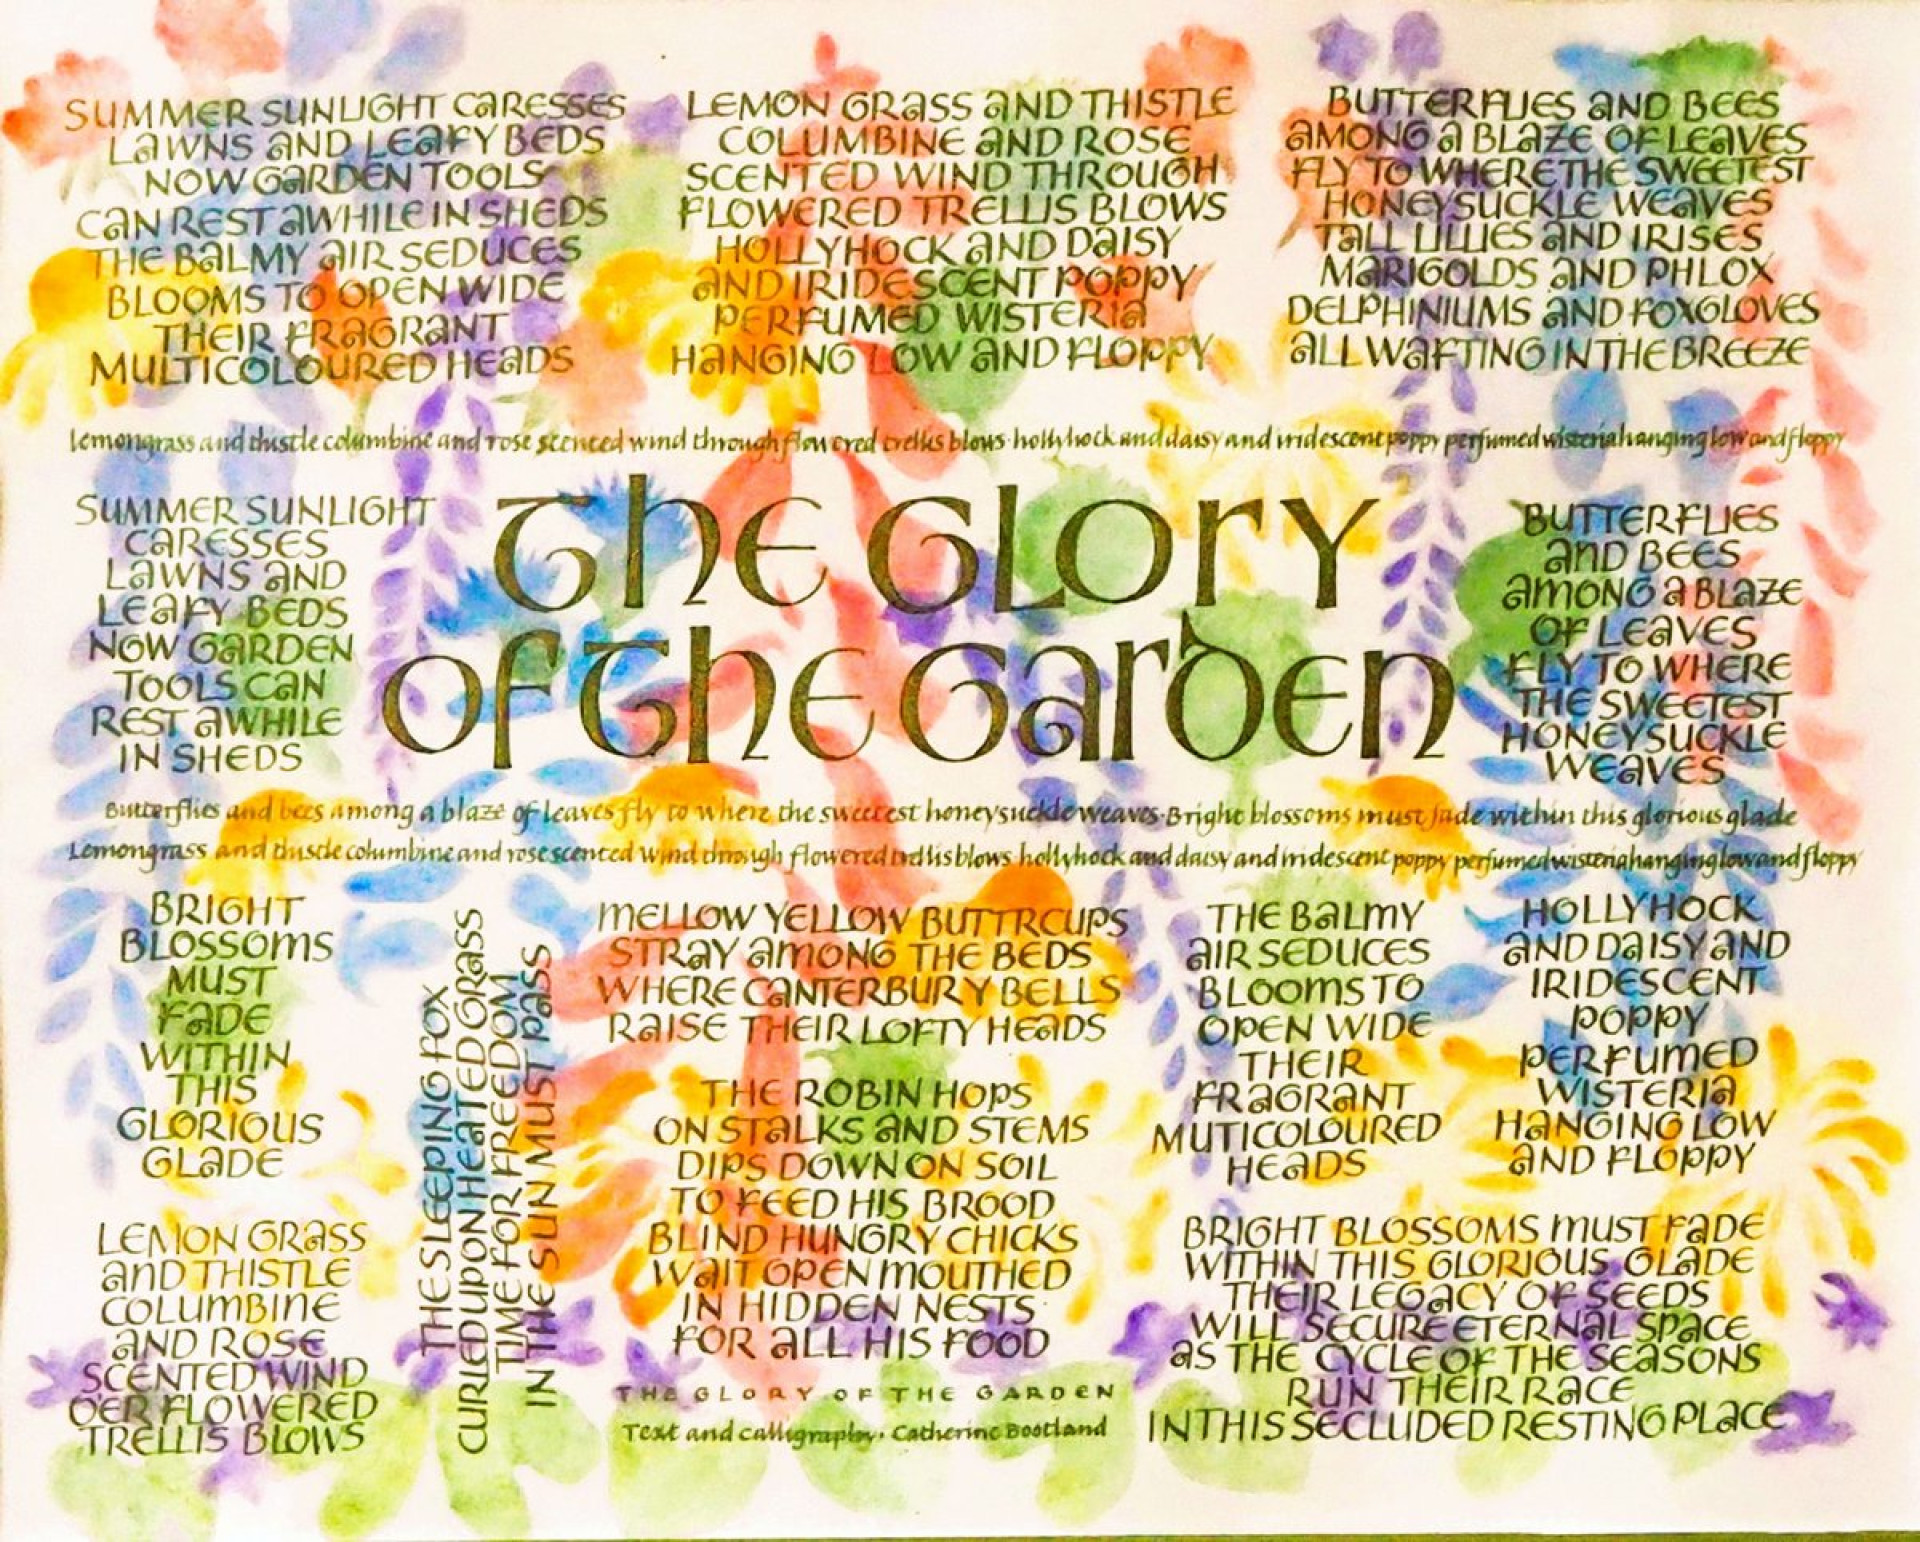 SUMMER SUNLIGHT CARESSES
LAWNS AND LEAFY BEDS
NOW GARDEN TOOLS
CAN REST AWHILE IN SHEDS
THE BALMY AIR SEDUCES
BLOOMS TO OPEN WIDE
THEIR FRAGRANT
MULTICOLOURED HEADS
LEMON GRASS AND THISTLE
COLUMBINE AND ROSE
SCENTED WIND THROUGH
FLOWERED TRELLIS BLOWS
HOLLYHOCK AND DAISY
AND IRIDESCENT POPPY
PERFUMED WISTERIA
HANGING LOW AND FLOPPY
BUTTERFLIES AND BEES
AMONG A BLAZE OF LEAVES
FLY TO WHERE THE SWEETEST
HONEYSUCKLE WEAVES
TALL LILLIES AND IRISES
MARIGOLDS AND PHLOX
DELPHINIUMS AND FOXGLOVES
ALL WAFTING IN THE BREEZE
lemongrass and thistle columbine and rose scented wind through flowered trellis blows·hollyhock and daisy and iridescent poppy perfumed wisteria hanging low and floppy
SUMMER SUNLIGHT
CARESSES
LAWNS AND
LEAFY BEDS
NOW GARDEN
TOOLS CAN
REST AWHILE
IN SHEDS
THE GLORY
OF THE GARDEN
BUTTERFLIES
AND BEES
AMONG A BLAZE
OF LEAVES
FLY TO WHERE
THE SWEETEST
HONEYSUCKLE
WEAVES
Butterflies and bees among a blaze of leaves fly to where the sweetest honeysuckle weaves·Bright blossoms must fade within this glorious glade
Lemongrass and thistle columbine and rose scented wind through flowered trellis blows hollyhock and daisy and iridescent poppy perfumed wisteria hanging low and floppy
BRIGHT
BLOSSOMS
MUST
FADE
WITHIN
THIS
GLORIOUS
GLADE
LEMON GRASS
AND THISTLE
COLUMBINE
AND ROSE
SCENTED WIND
O'ER FLOWERED
TRELLIS BLOWS
THE SLEEPING FOX
CURLED UPON HEATED GRASS
TIME FOR FREEDOM
IN THE SUN MUST PASS
MELLOW YELLOW BUTTRCUPS
STRAY AMONG THE BEDS
WHERE CANTERBURY BELLS
RAISE THEIR LOFTY HEADS
THE ROBIN HOPS
ON STALKS AND STEMS
DIPS DOWN ON SOIL
TO FEED HIS BROOD
BLIND HUNGRY CHICKS
WAIT OPEN MOUTHED
IN HIDDEN NESTS
FOR ALL HIS FOOD
THE GLORY OF THE GARDEN
Text and calligraphy. Catherine Bootland
THE BALMY
AIR SEDUCES
BLOOMS TO
OPEN WIDE
THEIR
FRAGRANT
MUTICOLOURED
HEADS
HOLLYHOCK
AND DAISY AND
IRIDESCENT
POPPY
PERFUMED
WISTERIA
HANGING LOW
AND FLOPPY
BRIGHT BLOSSOMS MUST FADE
WITHIN THIS GLORIOUS GLADE
THEIR LEGACY OF SEEDS
WILL SECURE ETERNAL SPACE
AS THE CYCLE OF THE SEASONS
RUN THEIR RACE
IN THIS SECLUDED RESTING PLACE